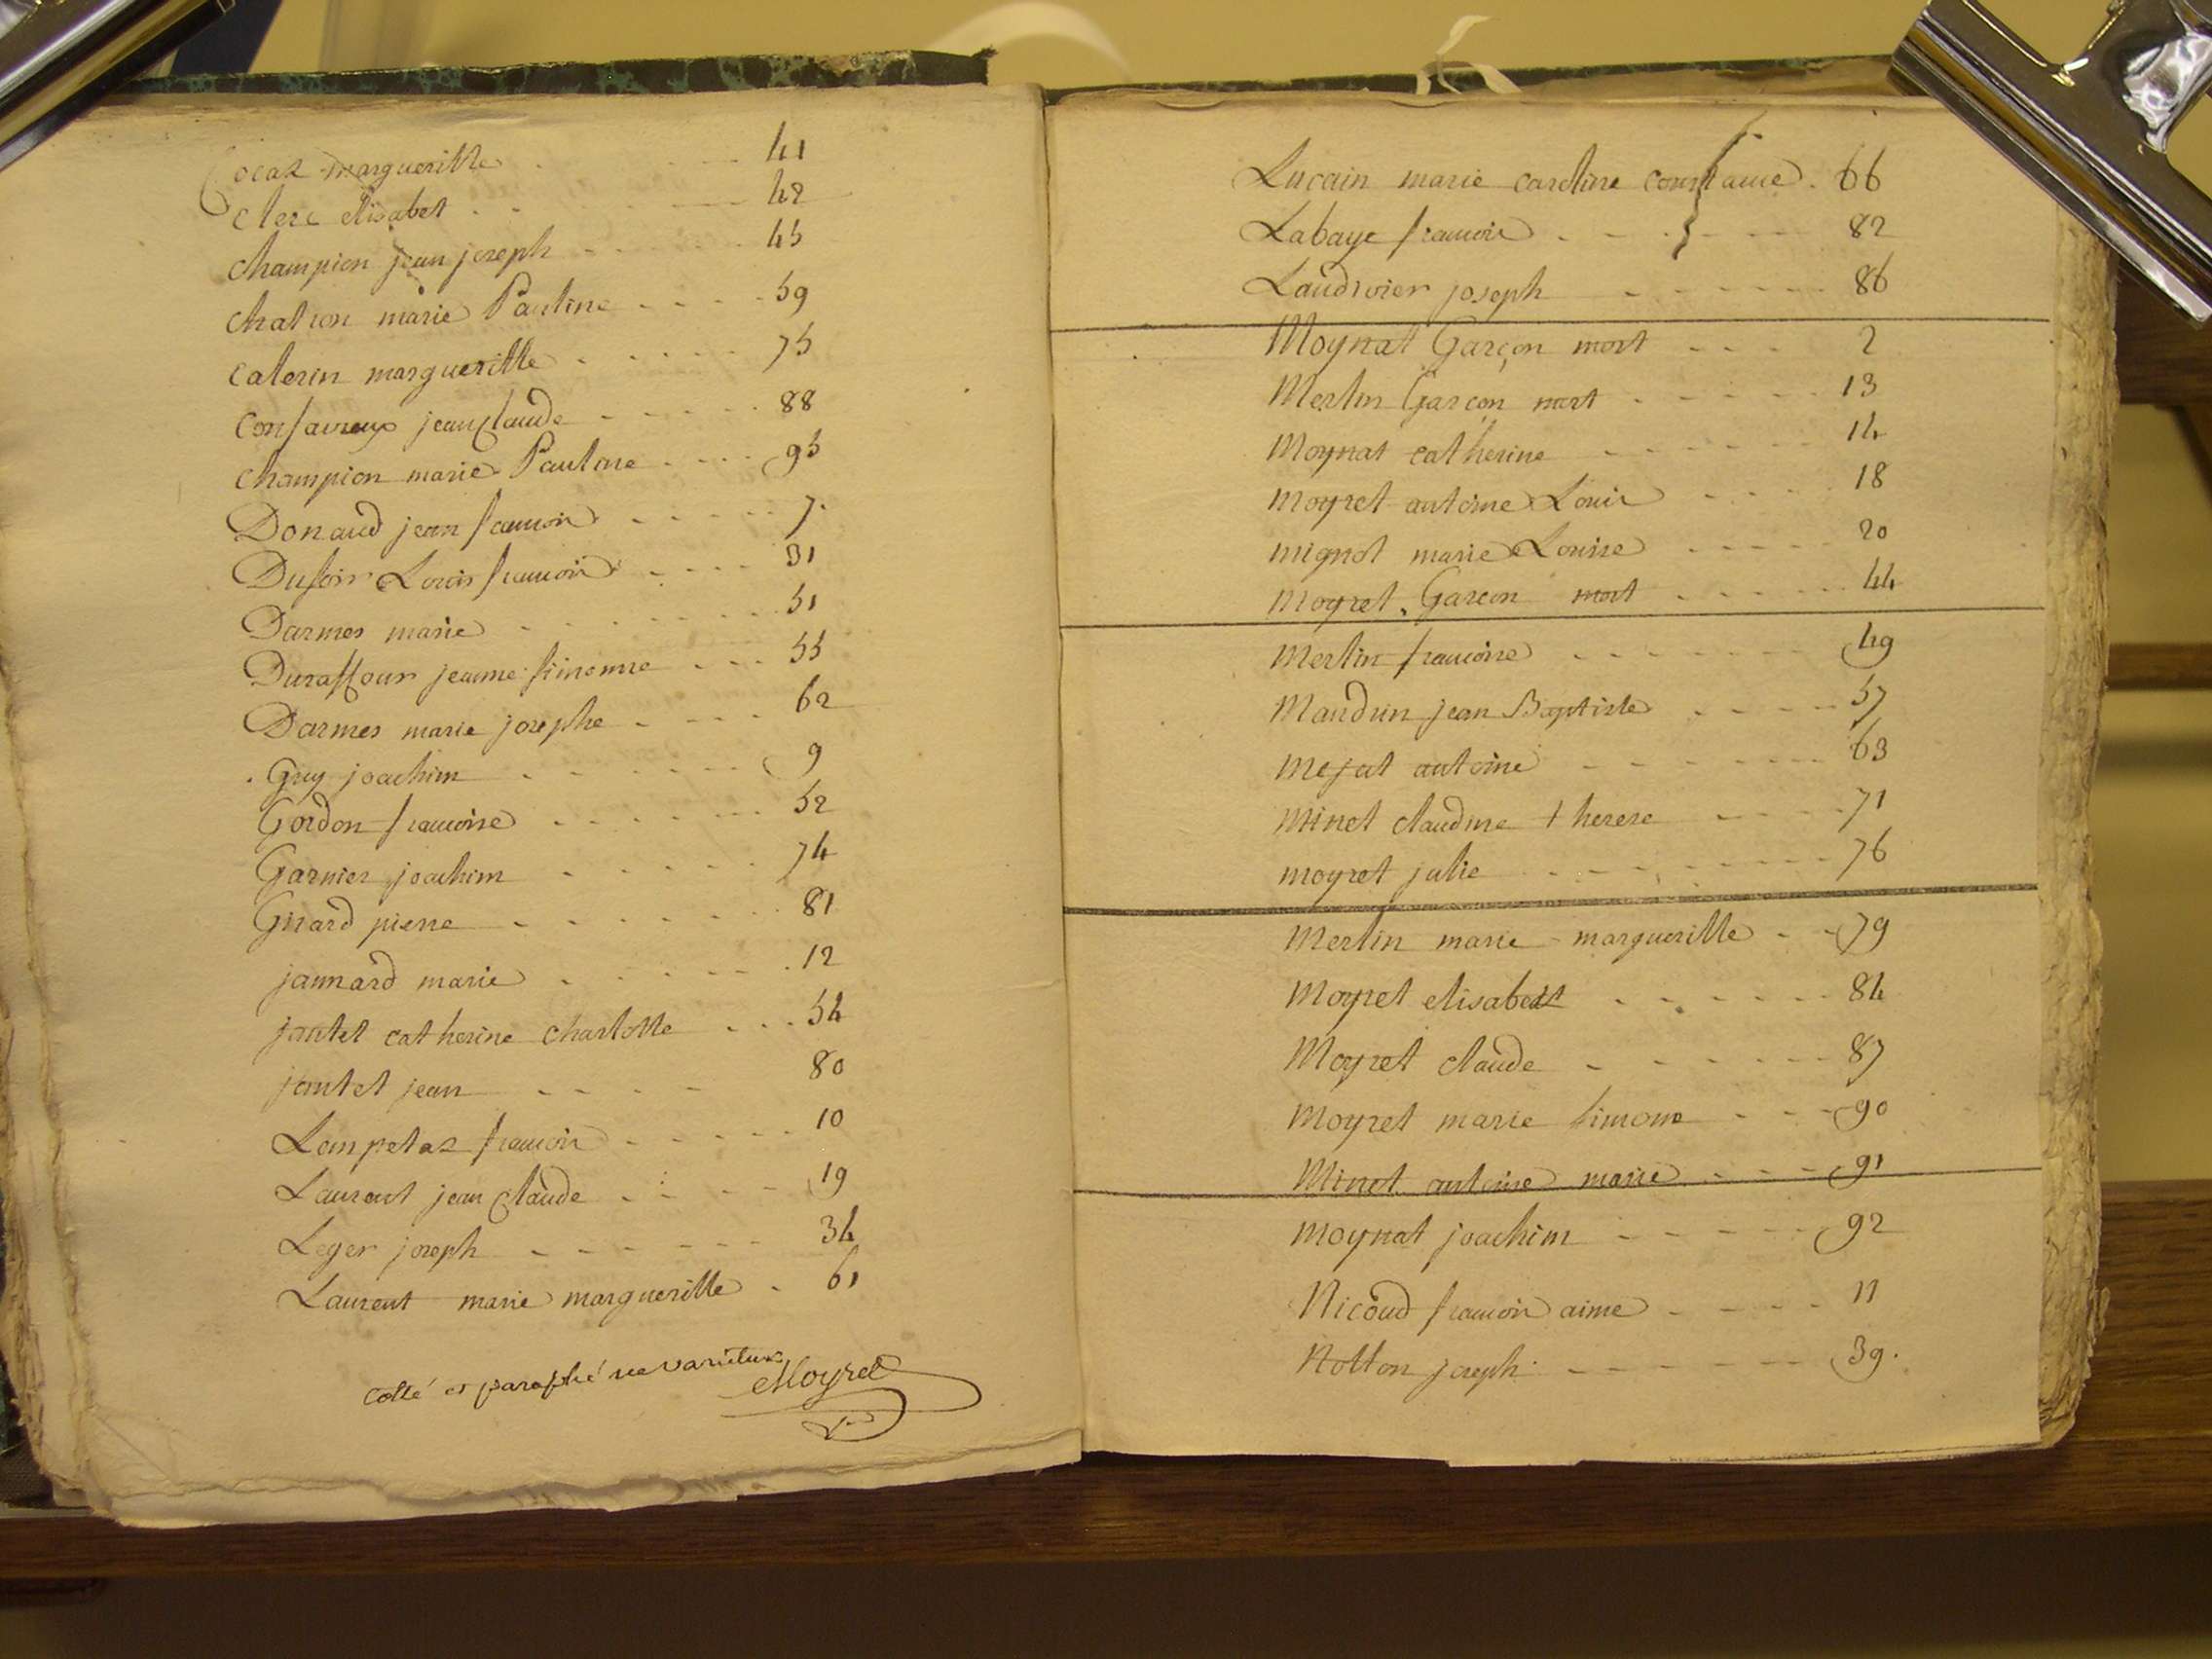 Cocat margueritte 41
Clerc elisabet 42
Champion jean joseph 45
Chatron marie Pauline 59
Caterin margueritte 75
jean Claude 88
Champion marie Pauline 95
Donaud jean francois 7
Louis francois 31
Darmes marie 51
Duraffour jeanne 55
Darmes marie josephe 62
Guy joachim 9
Gordon francoise 52
Garnier joachim 74
Girard pierre 81
jannard marie 12
jantet catherine charlotte 54
jantet jean 80
francois 10
Laurent jean Claude 19
Leger joseph 34
Laurent marie margueritte 61
Cotté et paraphé ne varietur Moyret
Lucain marie caroline constance 66
Labaye francois 82
Joseph 86
Moynat Garçon mort 2
Merlin Garçon mort 13
Moynat catherine 14
moyret antoine Louis 18
mignot marie Louise 20
moyret Garcon mort 44
Merlin francoise 49
Mandrin jean Baptiste 57
Mejat antoine 63
Minet claudine therese 71
moyret julie 76
Merlin marie margueritte 79
Moyret elisabett 84
Moyret claude 87
Moyret marie simone 90
Minet antoine marie 91
moynat joachim 92
Nicoud francois aime 11
Notton joseph 39